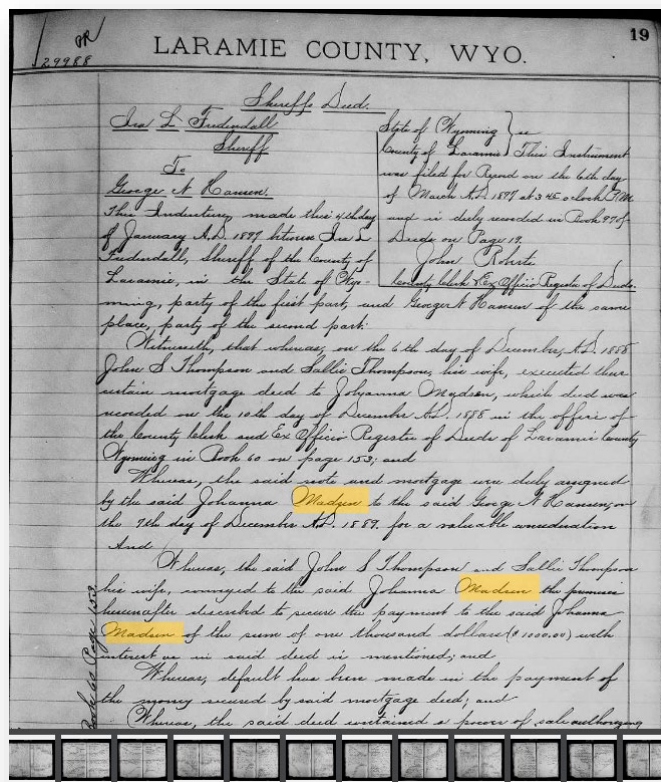 19
29988
LARAMIE COUNTY, WYO.
Sheriffs Deed.
Ira L Fredendall
Sheriff
To
George N Hansen.
State of Wyoming } ss
County of Laramie This Instrument
was filed for Record on the 6th day
of March A.D. 1897 at 3 45 o clock P.M.
and is duly recorded in Book 97 of
Deeds on Page 19.
John Roberts
County Clerk & Ex Officio Register of Deeds.
This Indenture, made this 4th day
of January A.D. 1897 between Ira L
Fredendall, Sheriff of the County of
Laramie, in the State of Wyo-
ming, party of the first part, and George N Hansen of the same
place, party of the second part:
Witnesseth, that whereas, on the 6th day of December, A.D. 1888
John S Thompson and Sallie Thompson, his wife, executed their
certain mortgage deed to Johanna Madsen, which deed was
recorded on the 10th day of December A.D. 1888 in the office of
the County Clerk and Ex Officio Register of Deeds of Laramie County
Wyoming in Book 60 on page 153; and
Whereas, the said note and mortgage were duly assigned
by the said Johanna Madsen to the said George N Hansen, on
the 7th day of December A.D. 1889. for a valuable consideration
And
Whereas, the said John S Thompson and Sallie Thompson
his wife, conveyed to the said Johanna Madsen the premises
hereinafter described to secure the payment to the said Johanna
Madsen of the sum of one thousand dollars ($1000.00) with
interest as in said deed is mentioned; and
Whereas, default has been made in the payment of
the money secured by said mortgage deed; and
Whereas, the said deed contained a power of sale authorizing
Book 60 Page 153